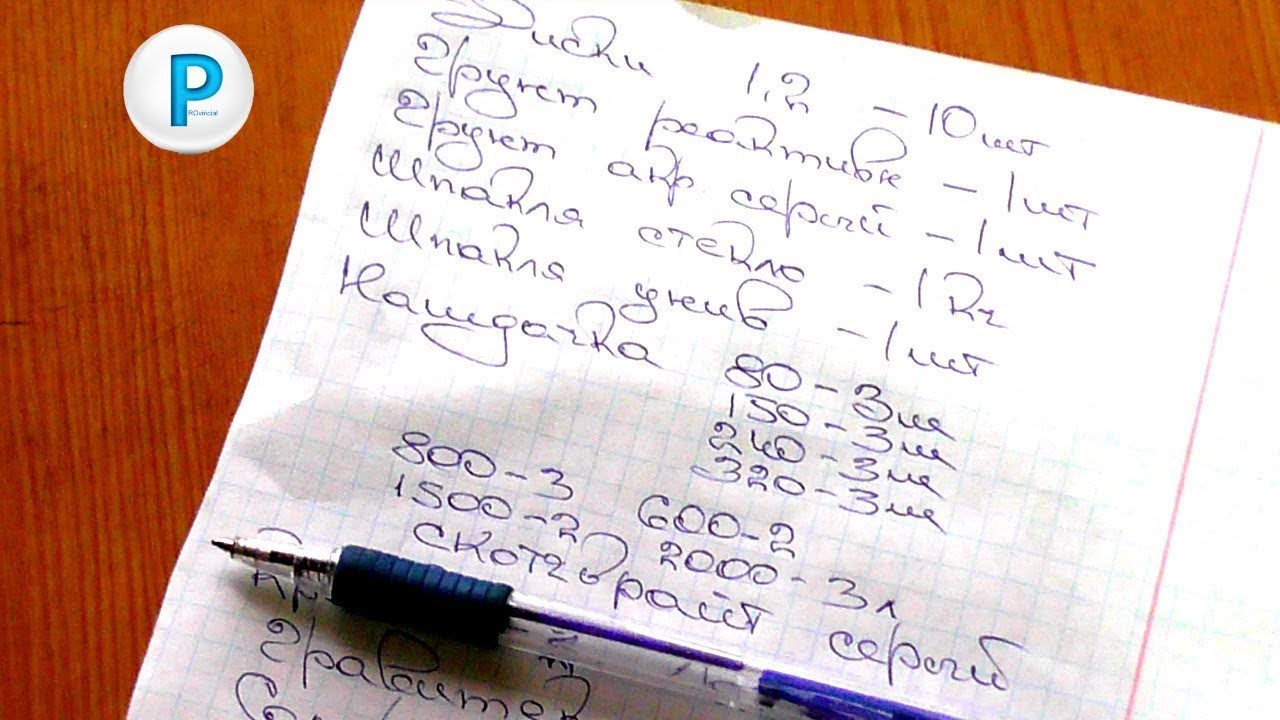 P
ROvincial
Диски 1,2 - 10 шт
Грунт реактивн - 1 шт
Грунт акр. серый - 1 шт
Шпакля стекло - 1 кг
Шпакля унив - 1 шт
Наждачка 80 - 3 м
150 - 3 м
240 - 3 м
320 - 3 м
800 - 3 600 - 2
1500 - 2 2000 - 3 л
скотчбрайт серый
Гравитек